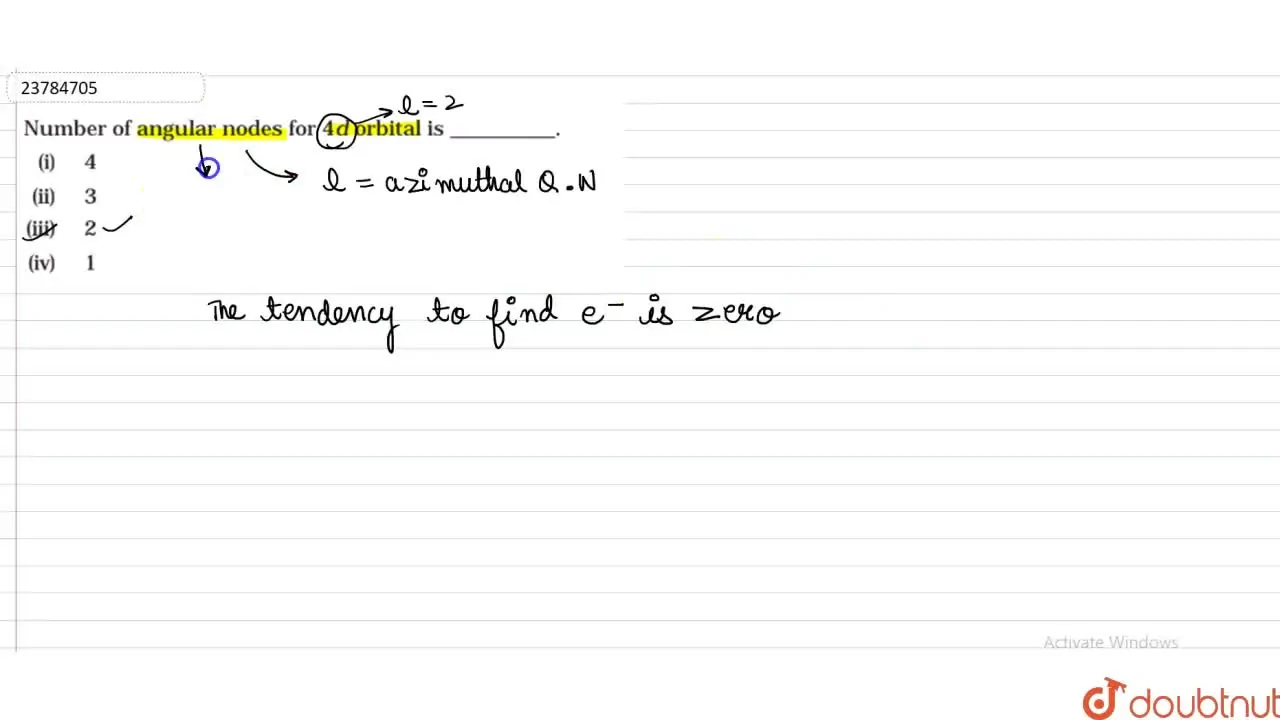 23784705
l = 2
Number of angular nodes for 4d orbital is __________.
(i) 4
l = azimuthal Q.N
(ii) 3
(iii) 2
(iv) 1
The tendency to find e⁻ is zero
Activate Windows
doubtnut